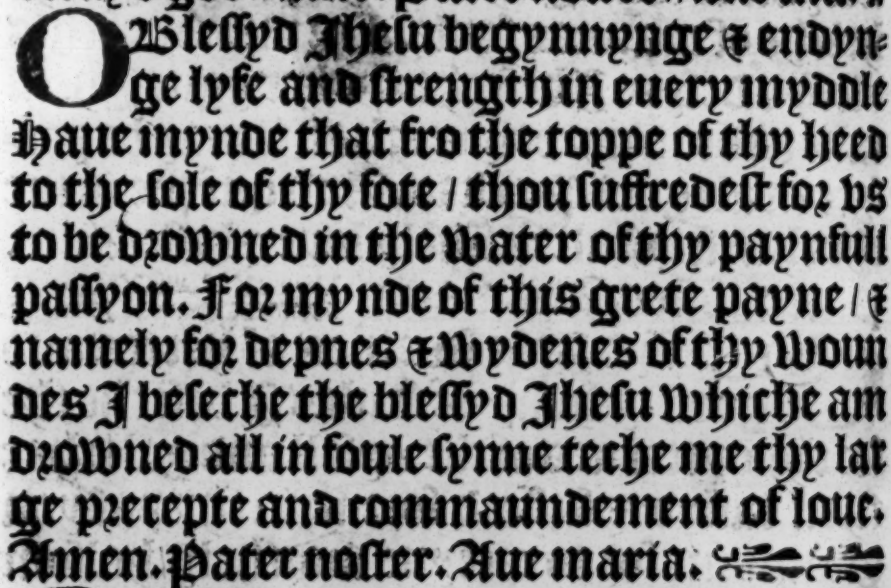 O Blessyd Jhesu begynnynge & endyn-
ge lyfe and strength in euery myddle
Haue mynde that fro the toppe of thy heed
to the sole of thy fote / thou suffredest for vs
to be drowned in the water of thy paynfull
passyon. For mynde of this grete payne / &
namely for depnes & wydenes of thy woun
des I beseche the blessyd Jhesu whiche am
drowned all in foule synne teche me thy lar
ge precepte and commaundement of loue.
Amen. Pater noster. Aue maria.